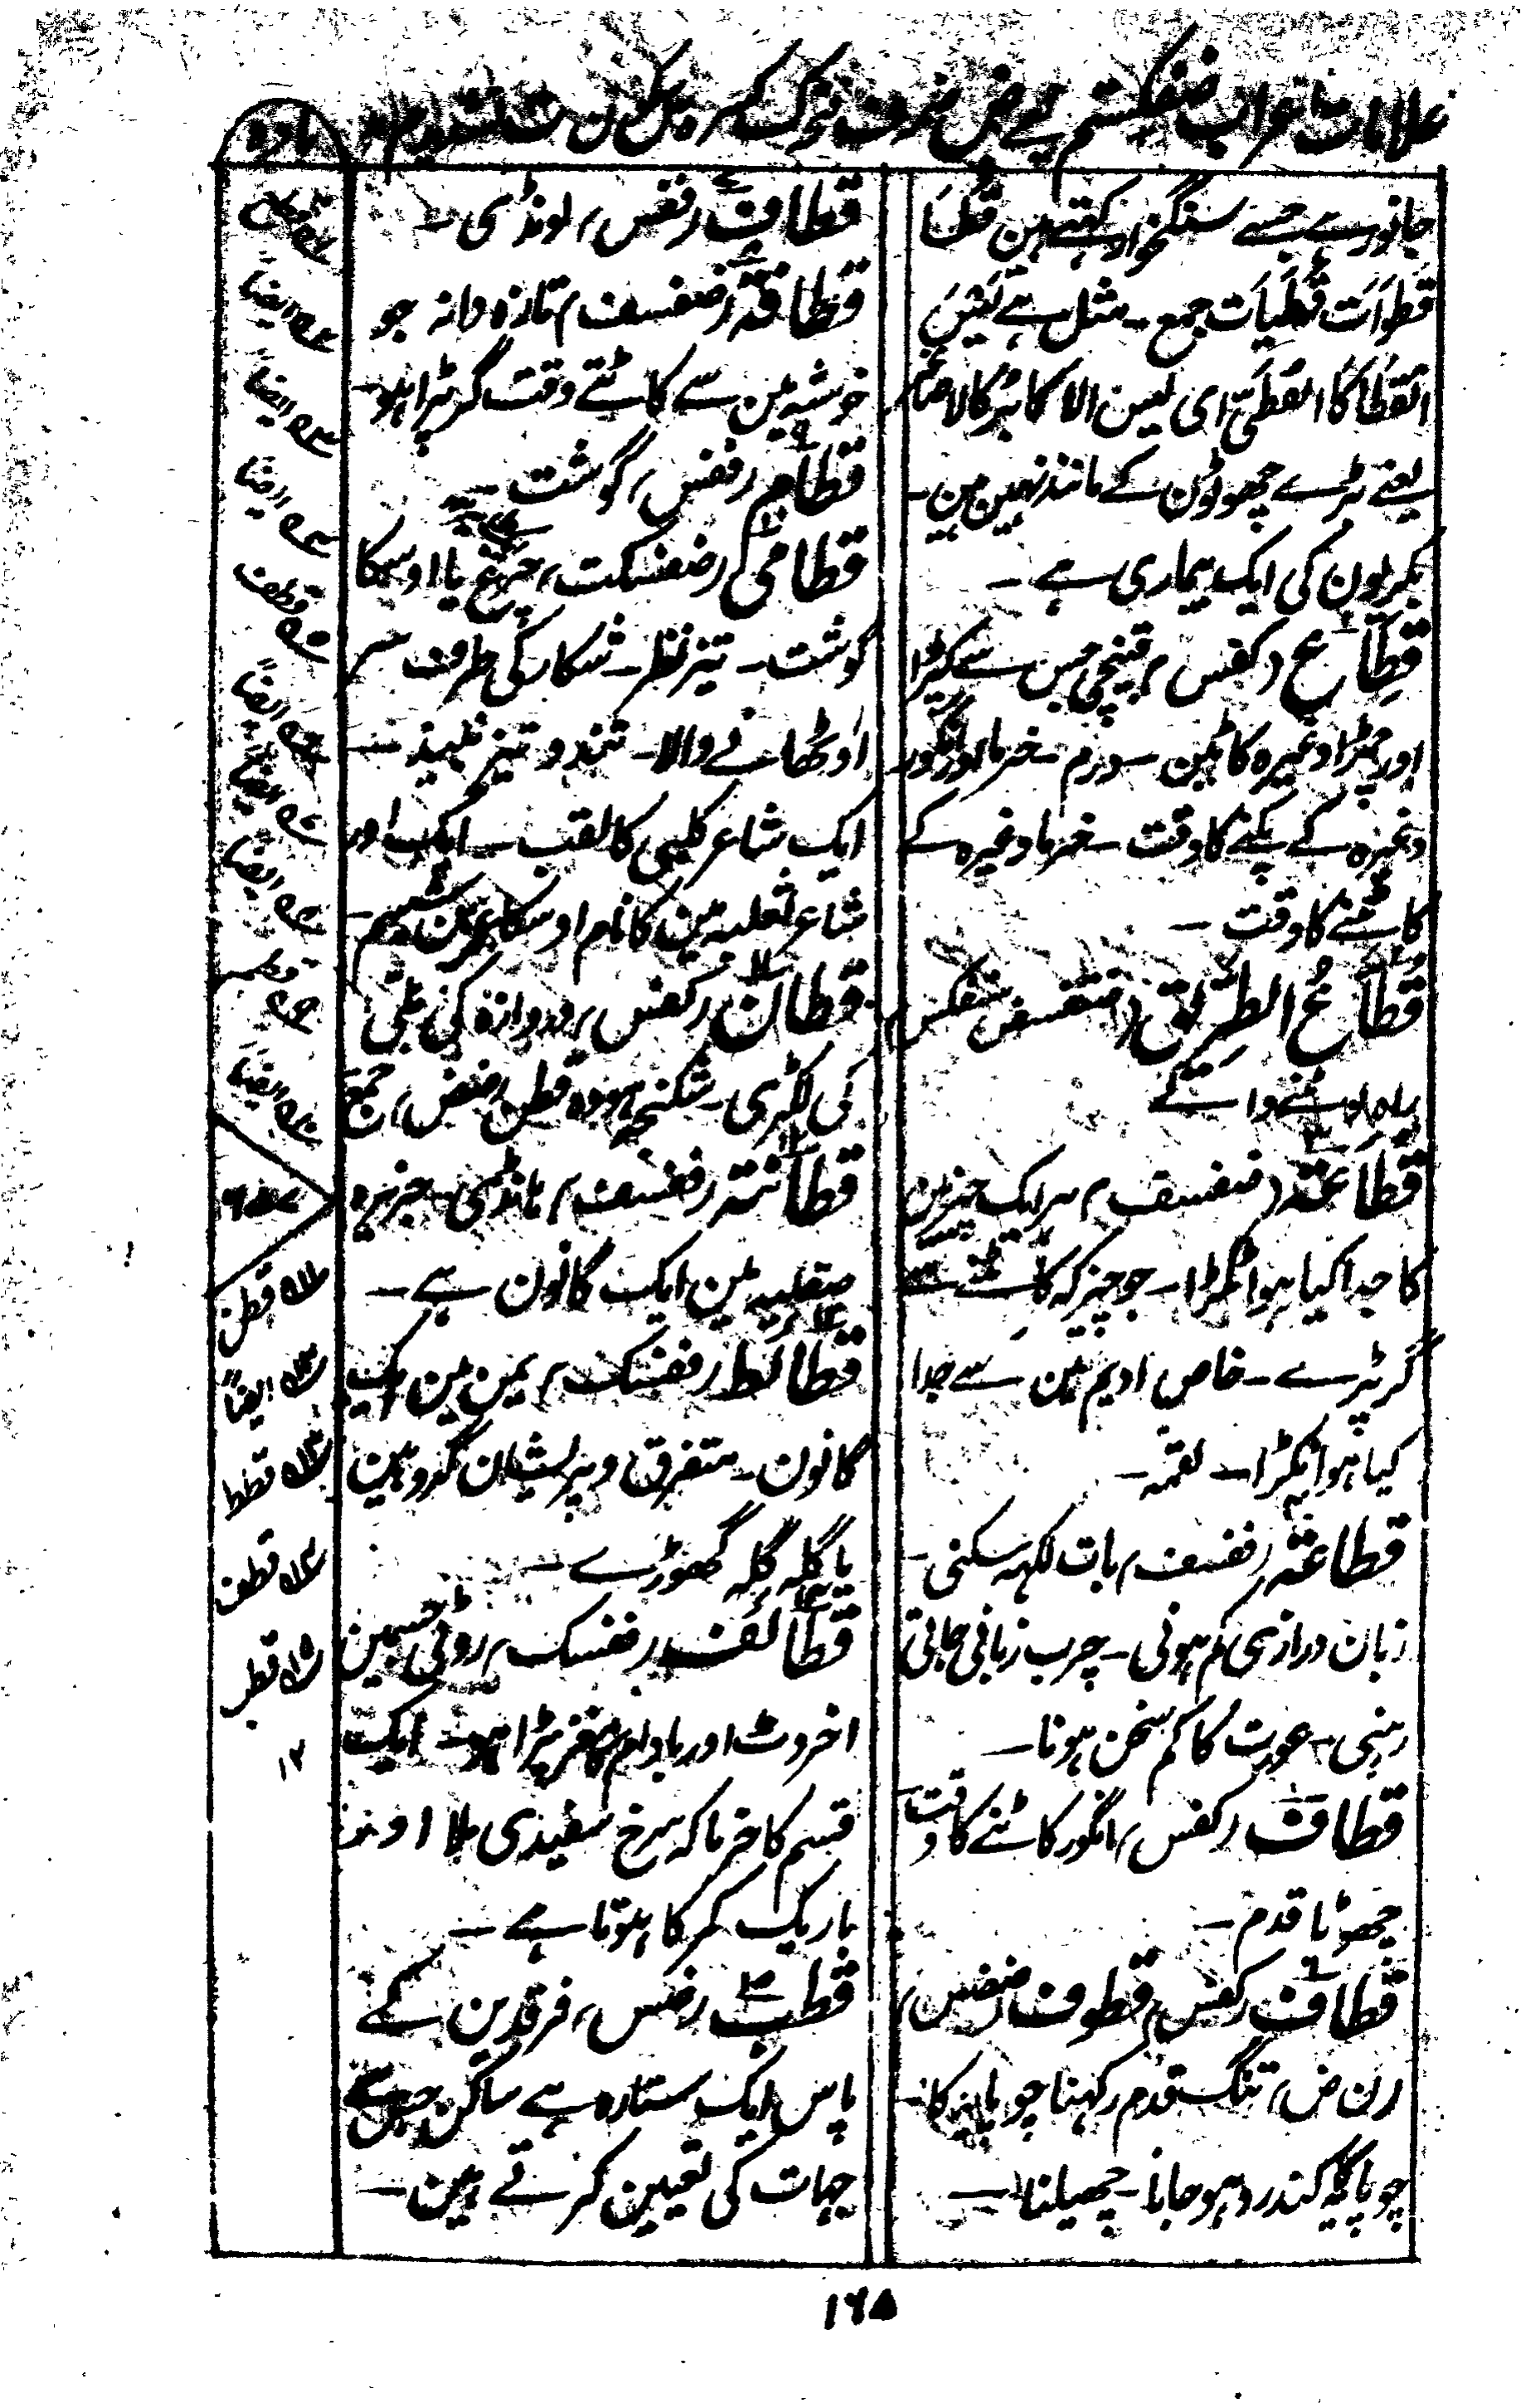 علامات اعراب ضفکستم یعنے ض ف ک س ت م
مادہ
جانور ہے جسے سنگخوار کہتے ہین قَطَا
قطوَات قَطَیَات جمع ۔ مثل ہے لَیْسَ
القَطَا کَا القُطَیّ ای لیس الاکابر کالاصاغر
یعنے بڑے چھوٹون کے مانند نہین ہین ۔
بکریون کی ایک بیماری ہے ۔
قِطَاع (کفس) قینچی جس سے کپڑا
اور چمڑا وغیرہ کاٹین ۔ درم ۔ خرما اور انگور
وغیرہ کے پکنے کا وقت ۔ خرما وغیرہ کے
کاٹنے کا وقت ۔
قُطَّاعُ الطَّرِیق
راہ مارنے والے
قطاعتہ (ضفسف) ہر ایک چیز مین
کا جدا کیا ہوا ٹکڑا ۔ جو چیز کہ کاٹنے سے
گر پڑے ۔ خاص ادیم مین سے جدا
کیا ہوا ٹکڑا ۔ لقمہ ۔
قطاعتہ (ففسف) بات نکہہ سکنی ۔
زبان درازی کم ہونی ۔ چرب زبانی جاتی
رہنی ۔ عورت کا کم سخن ہونا ۔
قطاف (کفس) انگور کاٹنے کا وقت
چھوٹا قدم ۔
قطاف (کفس) قطوف (ضضس)
(ن ض) تنگ قدم رکہنا چوپایہ کا ۔
چوپایہ کا کند رو ہو جانا ۔ چھیلنا ۔
قطاف (ففس) لونڈی ۔
قطافتہ (ضفسف) تازہ دانہ جو
خوشہ مین سے کاٹتے وقت گر پڑا ہو ۔
قطام (ففس) گوشت ۔
قطامی (ضفسکت) چرغ یا اوسکا
گوشت ۔ تیز نظر ۔ شکار کی طرف سر
اوٹھانے والا ۔ تند و تیز نبیذ ۔
ایک شاعر کلبی کا لقب ۔ ایک اور
شاعر ثعلبہ مین کا نام اوسکا عمیر بن شییم ۔
قطان (کفس) دروازہ کی بلی
کی لکڑی ۔ شکنجہ ہودہ قطن (ضض) جمع
قطانتہ (ففسف) ہانڈی ۔ جزیرہ
صقلیہ مین ایک گانون ہے ۔
قطائط (ففسک) یمن مین ایک
گانون ۔ متفرق و پریشان گروہین
یا گلہ گلہ گھوڑے ۔
قطائف (ففسک) روٹی جسمین
اخروٹ اور بادام کا مغز پڑا ہو ۔ ایک
قسم کا خرما کہ سرخ سفیدی ملا اور
باریک کمر کا ہوتا ہے ۔
قطب (ضس) فرقدین کے
پاس ایک ستارہ ہے ساکن جس سے
جہات کی تعیین کرتے ہین ۔
قطع
۲ ایضاً
۳ ایضاً
۴ ایضاً
۵ قطف
۶ ایضاً
۷ ایضاً
۸ ایضاً
۹ قطم
۱۰ ایضاً
۱۱ قطن
۱۲ ایضاً
۱۳ قطط
۱۴ قطف
۱۵ قطب
۱۲
۱۶۵